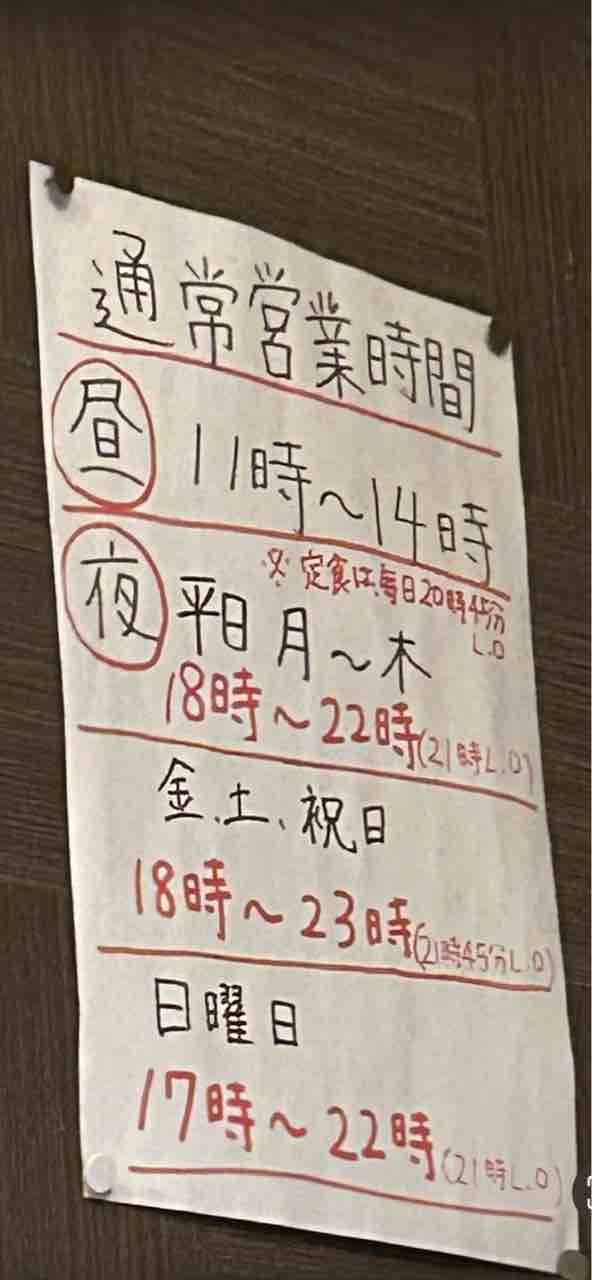 通常営業時間
昼 11時～14時
※定食は毎日20時45分
L.O
夜 平日 月～木
18時～22時(21時L.O)
金、土、祝日
18時～23時(21時45分L.O)
日曜日
17時～22時(21時L.O)